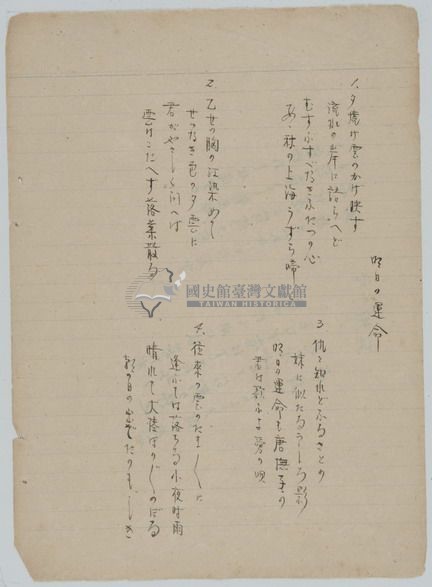 明日の運命
1、夕焼け雲のかげ映す
流れの岸に語らへど
むすぶすべなきふたつの心
あゝ秋の上海うずら啼
2 乙女の胸の江染めて
せつなき色の夕雲に
君がやさしく問へば
雲はこたへず落葉散る
3 仇と知れどふるさとの
妹に似たるうしろ影
明日の運命も唐撫子の
君は歌ふよ 愛の唄
4、往来の雲のたまくに
逢いては落ちる小夜時雨
晴れて大陸ほのぼのと
國史館臺灣文獻館
TAIWAN HISTORICA